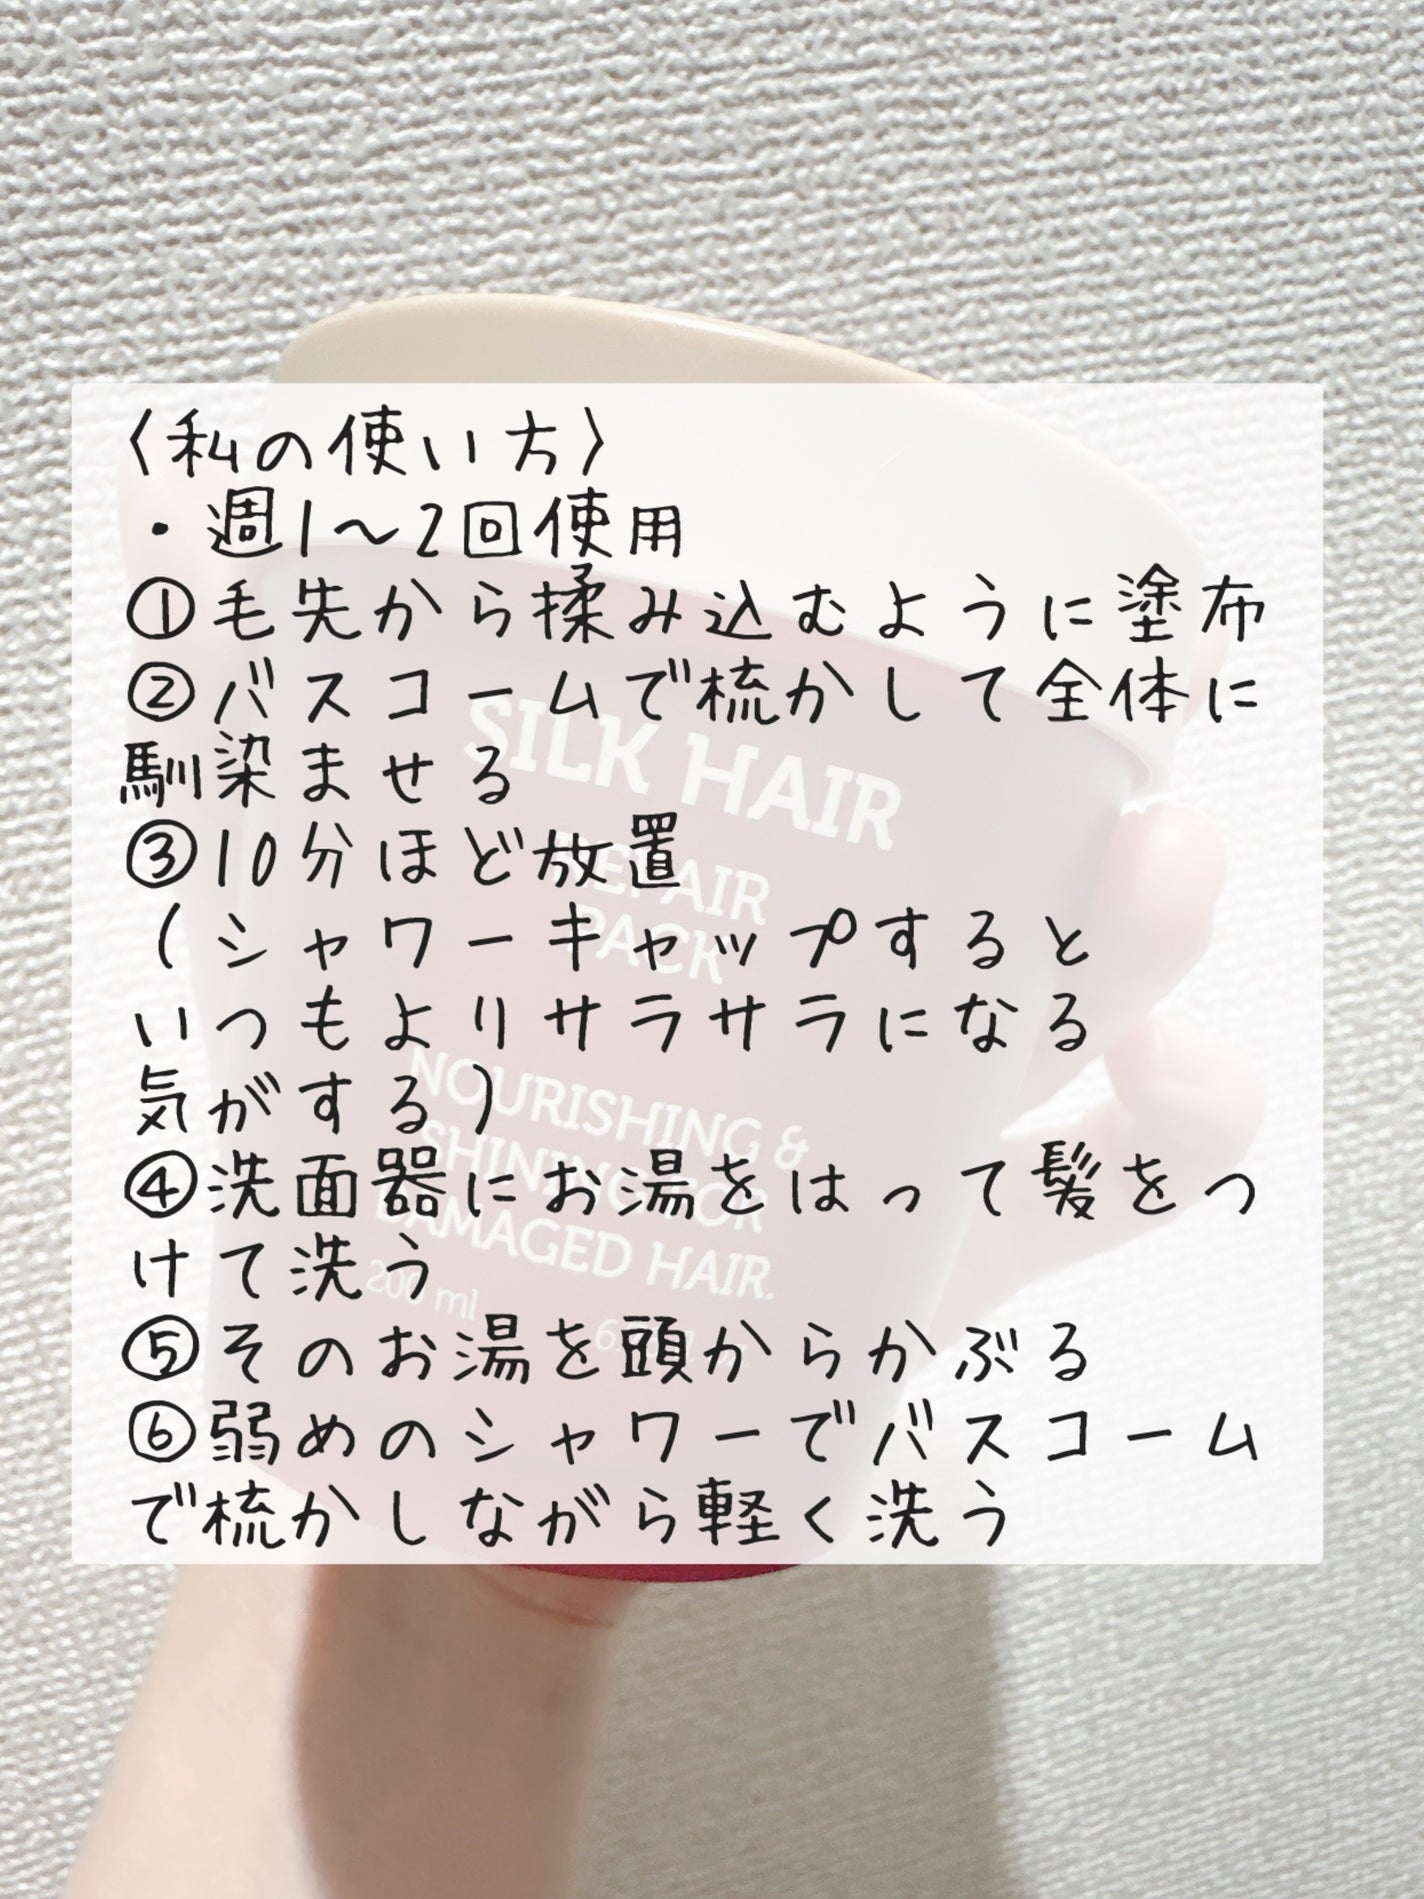 〈私の使い方〉
・週1〜2回使用
①毛先から揉み込むように塗布
②バスコームで梳かして全体に
馴染ませる
③10分ほど放置
(シャワーキャップすると
いつもよりサラサラになる
気がする)
④洗面器にお湯をはって髪をつ
けて洗う
⑤そのお湯を頭からかぶる
⑥弱めのシャワーでバスコーム
で梳かしながら軽く洗う
SILK HAIR
REPAIR
PACK
NOURISHING &
SHINING FOR
DAMAGED HAIR.
200 ml